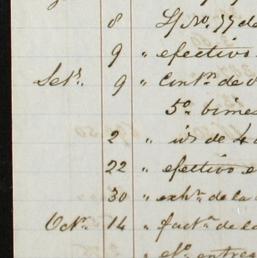 8 L/ No. 77 de
9 " efectivo
Set. 9 " Cont. de
5o. bimes
2 " id de 4
22 " efectivo e
30 " exh. de la
Oct. 14 " fact. de la
" efo. entre